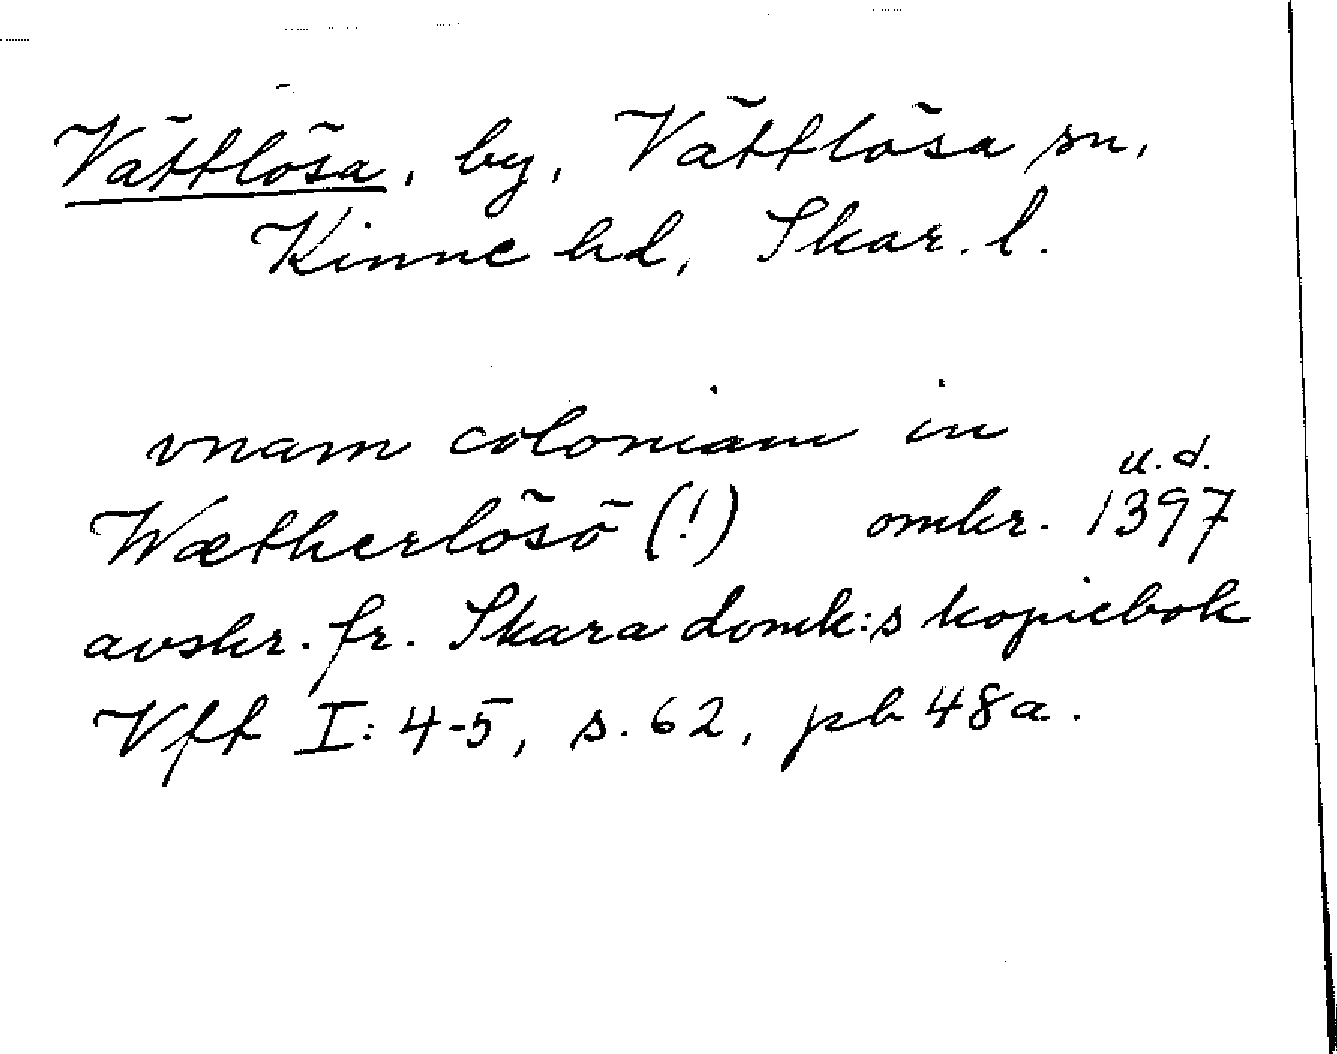 Vättlösa, by, Vättlösa sn,
Kinne hd, Skar. l.
vnam coloniam in
u.d.
Wætherlösö (!) omkr. 1397
avskr. fr. Skara domk:s kopiebok
Vft I: 4-5, s. 62, ph 48a.